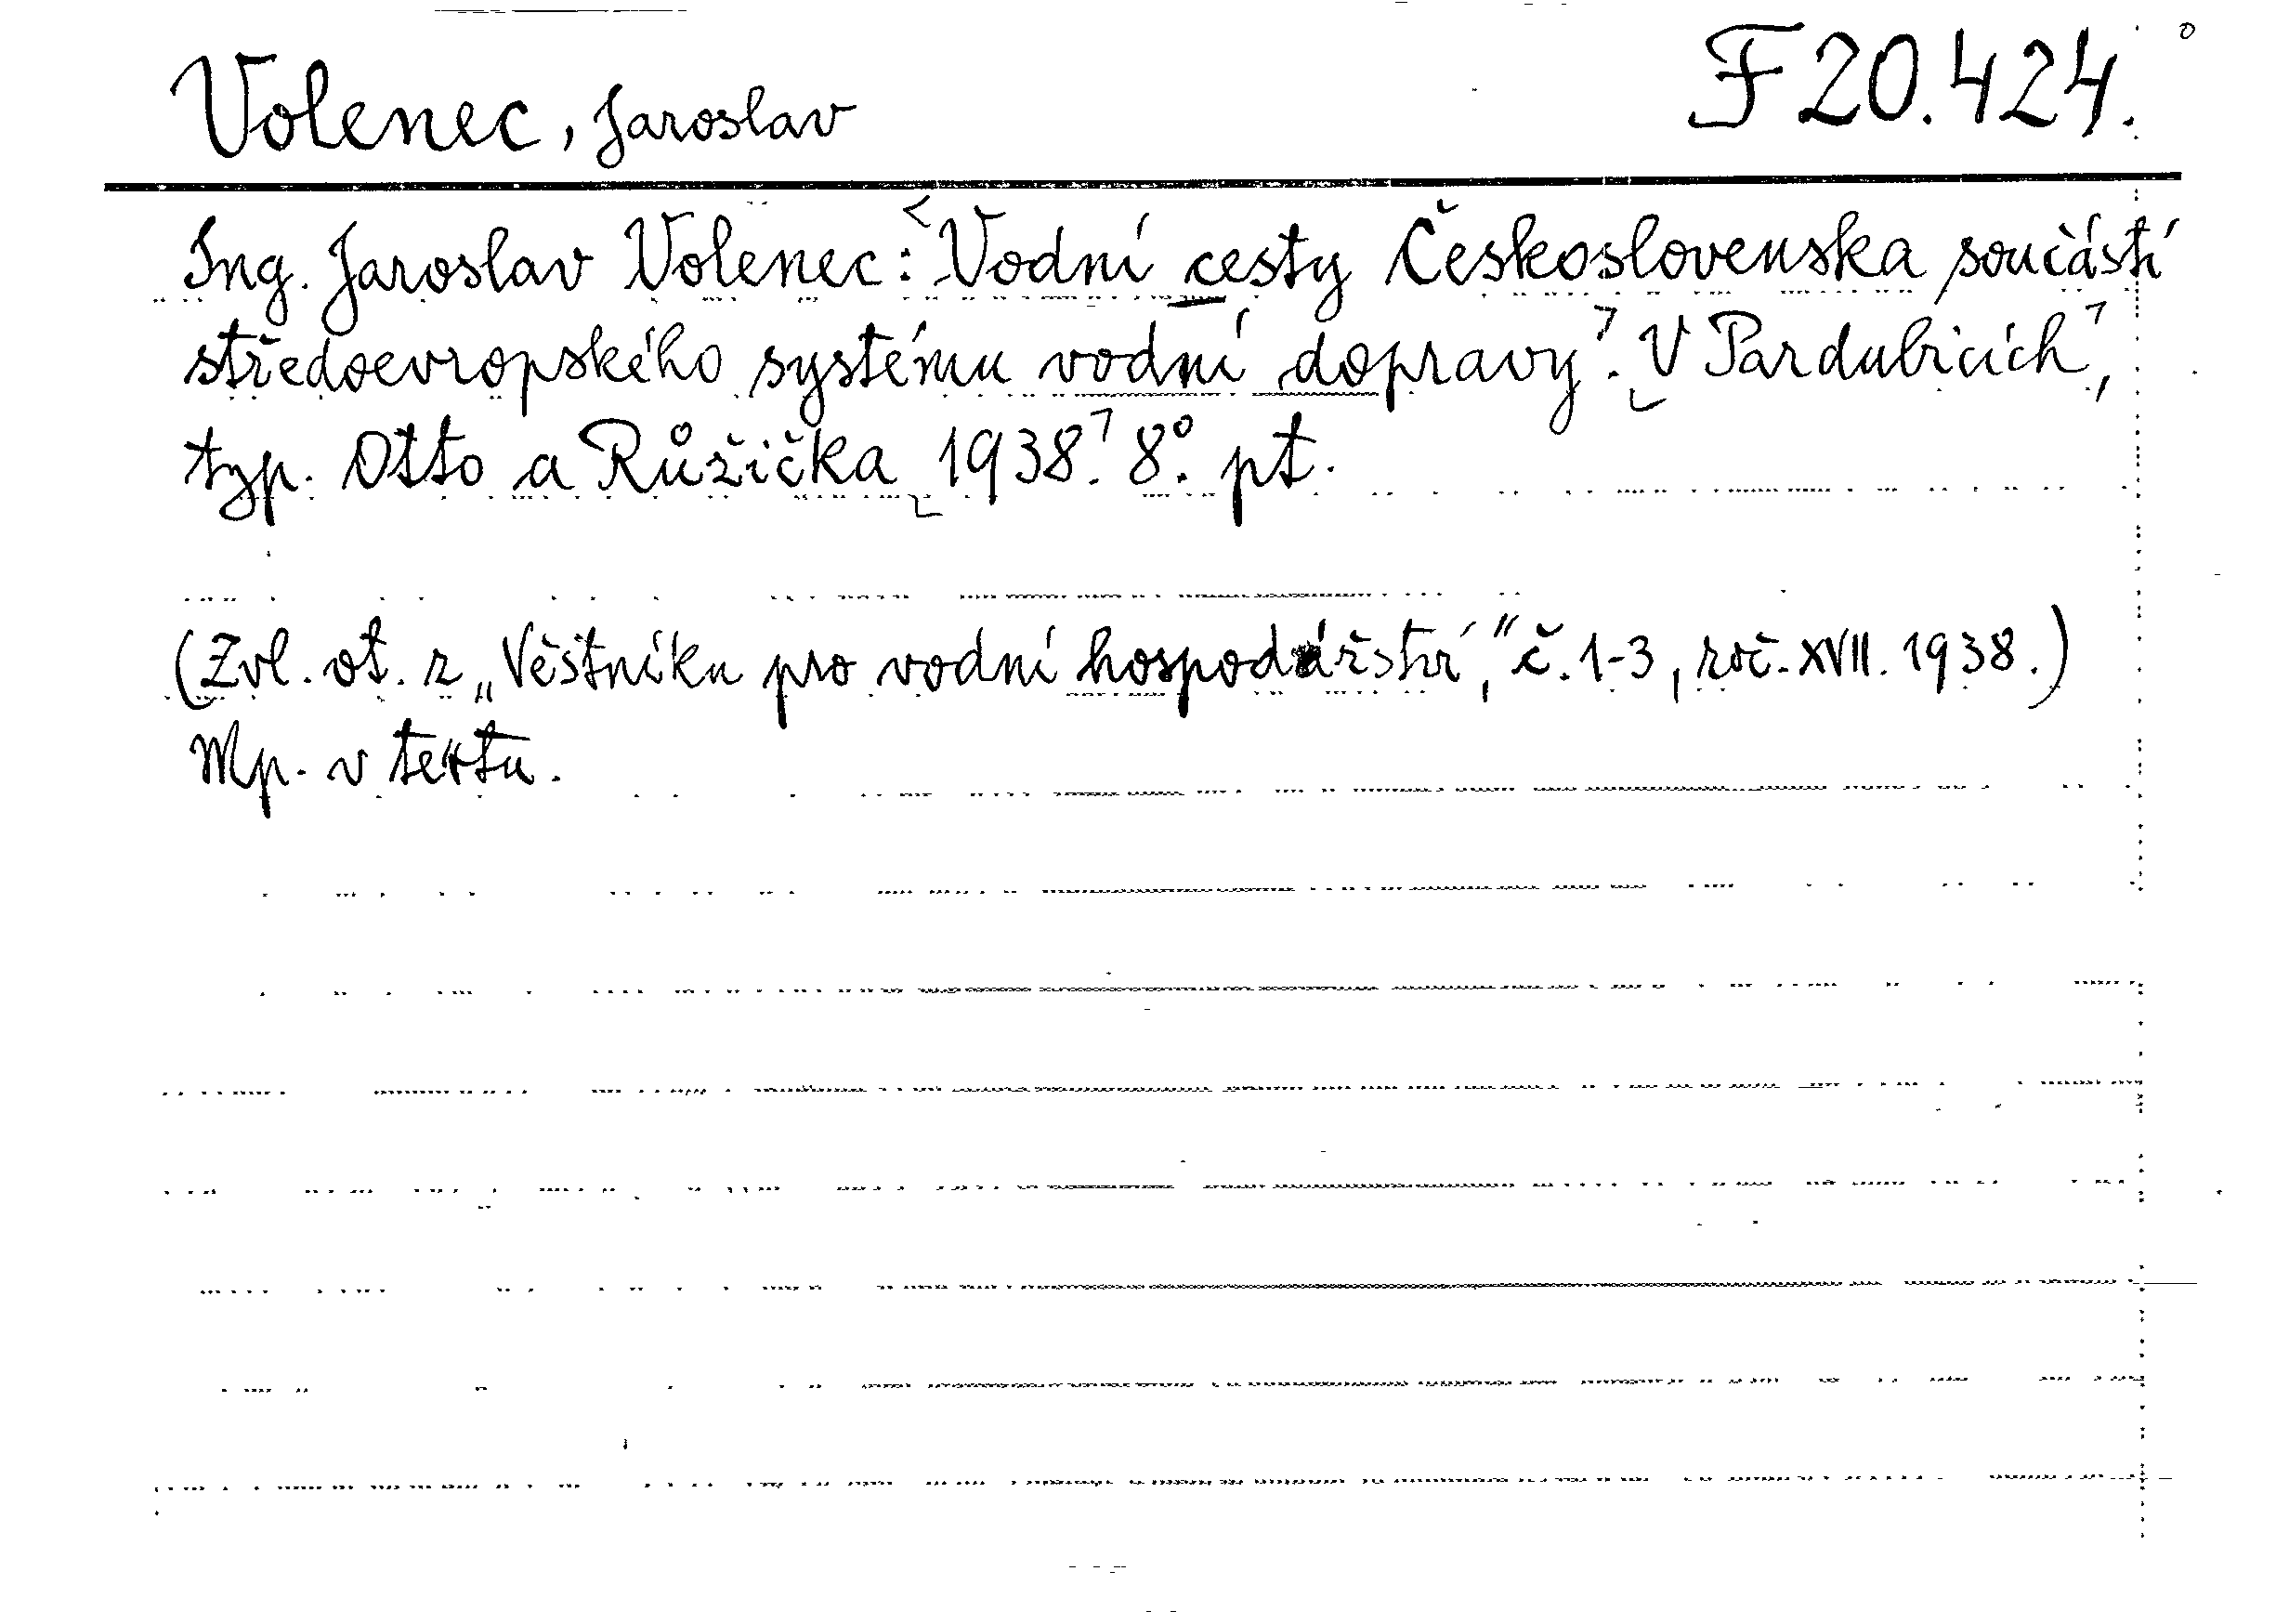 Volenec, Jaroslav F 20.424.
Ing. Jaroslav Volenec: Vodní cesty Československa součástí
středoevropského systému vodní dopravy. V Pardubicích,
typ. Otto a Růžička 1938. 8°. pt.
(Zvl. ot. z „Věstníku pro vodní hospodářství,“ č. 1-3, roč. XVII. 1938.)
Mp. v textu.